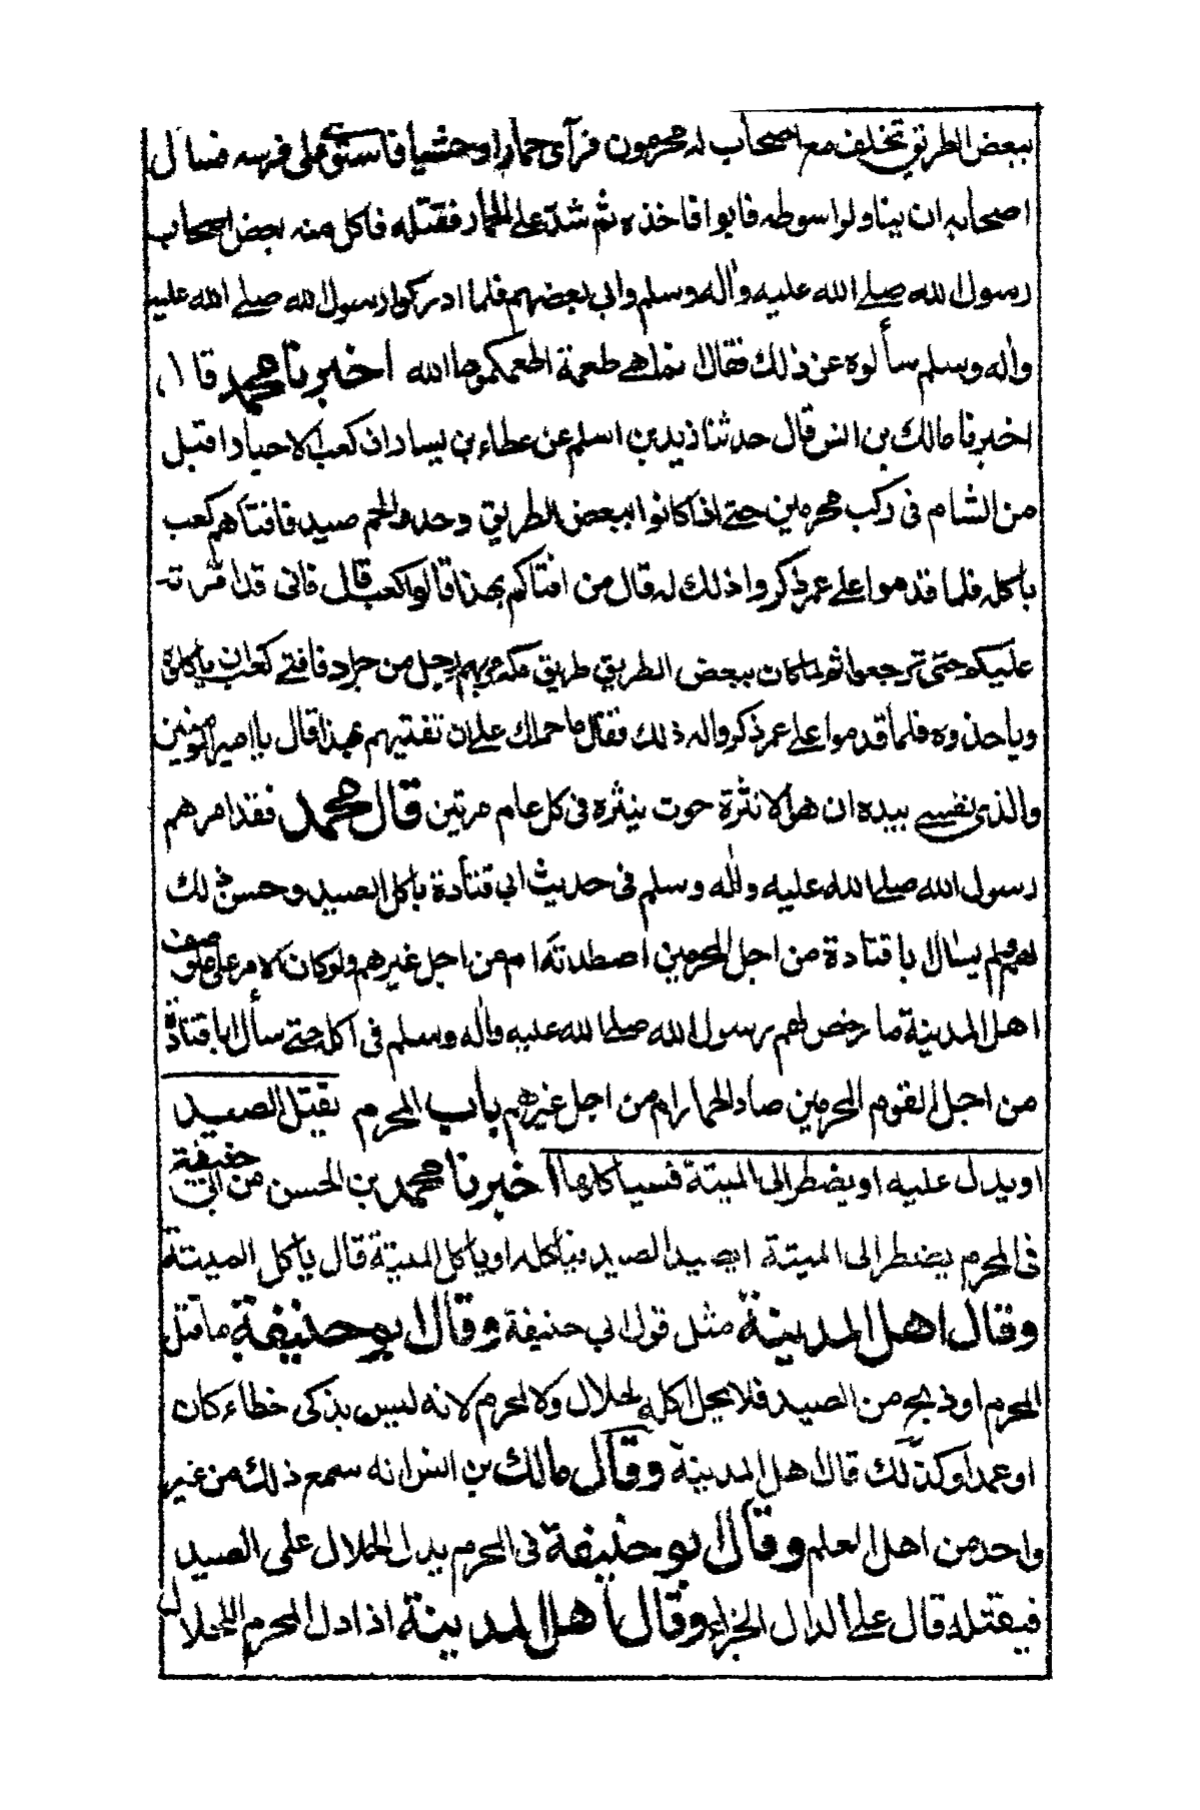 ببعض الطريق تخلف مع اصحاب له محرمون فرآى حمارا وحشيا فاستوى على فرسه فسأل
اصحابه ان يناولوا سوطه فابوا فاخذه ثم شد على الحمار فقتله فاكل منه بعض اصحاب
رسول الله صلے الله عليه واٰله وسلم وابى بعضهم فلما ادركوا رسول الله صلے الله عليه
واٰله وسلم سألوه عن ذلك فقال انما هے طعمة اطعمكموها الله اخبرنا محمد قال
اخبرنا مالك بن انس قال حدثنا زيد بن اسلم عن عطاء بن يسار ان كعب الاحبار اقبل
من الشام فى ركب محرمين حتے اذا كانوا ببعض الطريق وجدوا لحم صيد فافتاهم كعب
باكله فلما قدموا على عمر ذكروا ذلك له قال من افتاكم بهذا قالوا كعب قال فانى قد امرته
عليكم حتى ترجعوا ثم لما كان ببعض الطريق طريق مكة مر بهم رجل من جراد فافتے كعب ان ياكلوه
وياخذوه فلما قدموا على عمر ذكروا له ذلك فقال ما حملك على ان تفتيهم بهذا قال يا امير المومنين
والذى نفسے بيده ان هو الا نثرة حوت ينثره فى كل عام مرتين قال محمد فقد امرهم
رسول الله صلے الله عليه واٰله وسلم فى حديث ابى قتادة باكل الصيد وحسن ذلك
لهم ولم يسأل ابا قتادة من اجل المحرمين اصطدته ام من اجل غيرهم ولو كان الامر على ما وصف
اهل المدينة ما رخص لهم رسول الله صلے الله عليه واٰله وسلم فى اكله حتے سأل ابا قتادة
من اجل القوم المحرمين صاد الحمار ام من اجل غيرهم باب المحرم يقتل الصيد
او يدل عليه او يضطر الى الميتة فسياكلها اخبرنا محمد بن الحسن عن ابى حنيفة
فى المحرم يضطر الى الميتة ايصيد الصيد فيأكله او ياكل الميتة قال ياكل الميتة
وقال اهل المدينة مثل قول ابى حنيفة وقال ابو حنيفة ما قتل
المحرم او ذبح من الصيد فلا يحل اكله لحلال ولا لمحرم لانه ليس بذكى خطاء كان
او عمدا وكذلك قال اهل المدينة وقال مالك بن انس انه سمع ذلك من غير
واحد من اهل العلم وقال ابو حنيفة فى المحرم يدل الحلال على الصيد
فيقتله قال على الدال الجزاء وقال اهل المدينة اذا دل المحرم الحلال